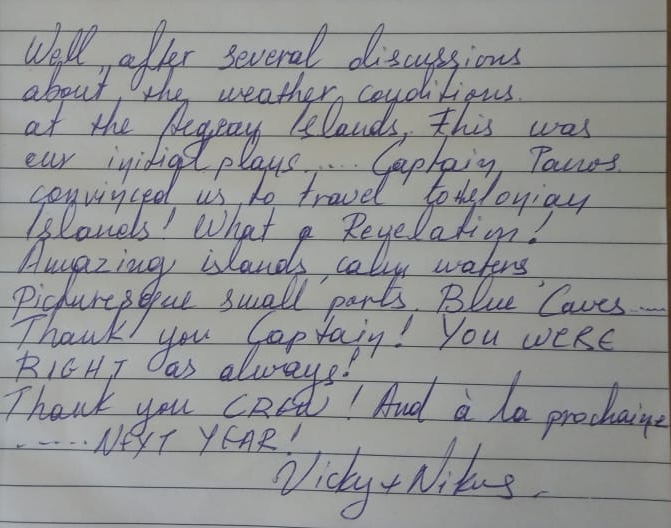 Well, after several discussions
about the weather conditions.
at the Aegean Islands, this was
our initial plans.... Captain Panos
convinced us to travel to Ionian
Islands! What a Revelation!
Amazing islands, calm waters,
Picturesque small ports, Blue Caves....
Thank you Captain! YOU WERE
RIGHT as always!
Thank you CREW! And à la prochaine
...... NEXT YEAR!
Vicky + Nikos.